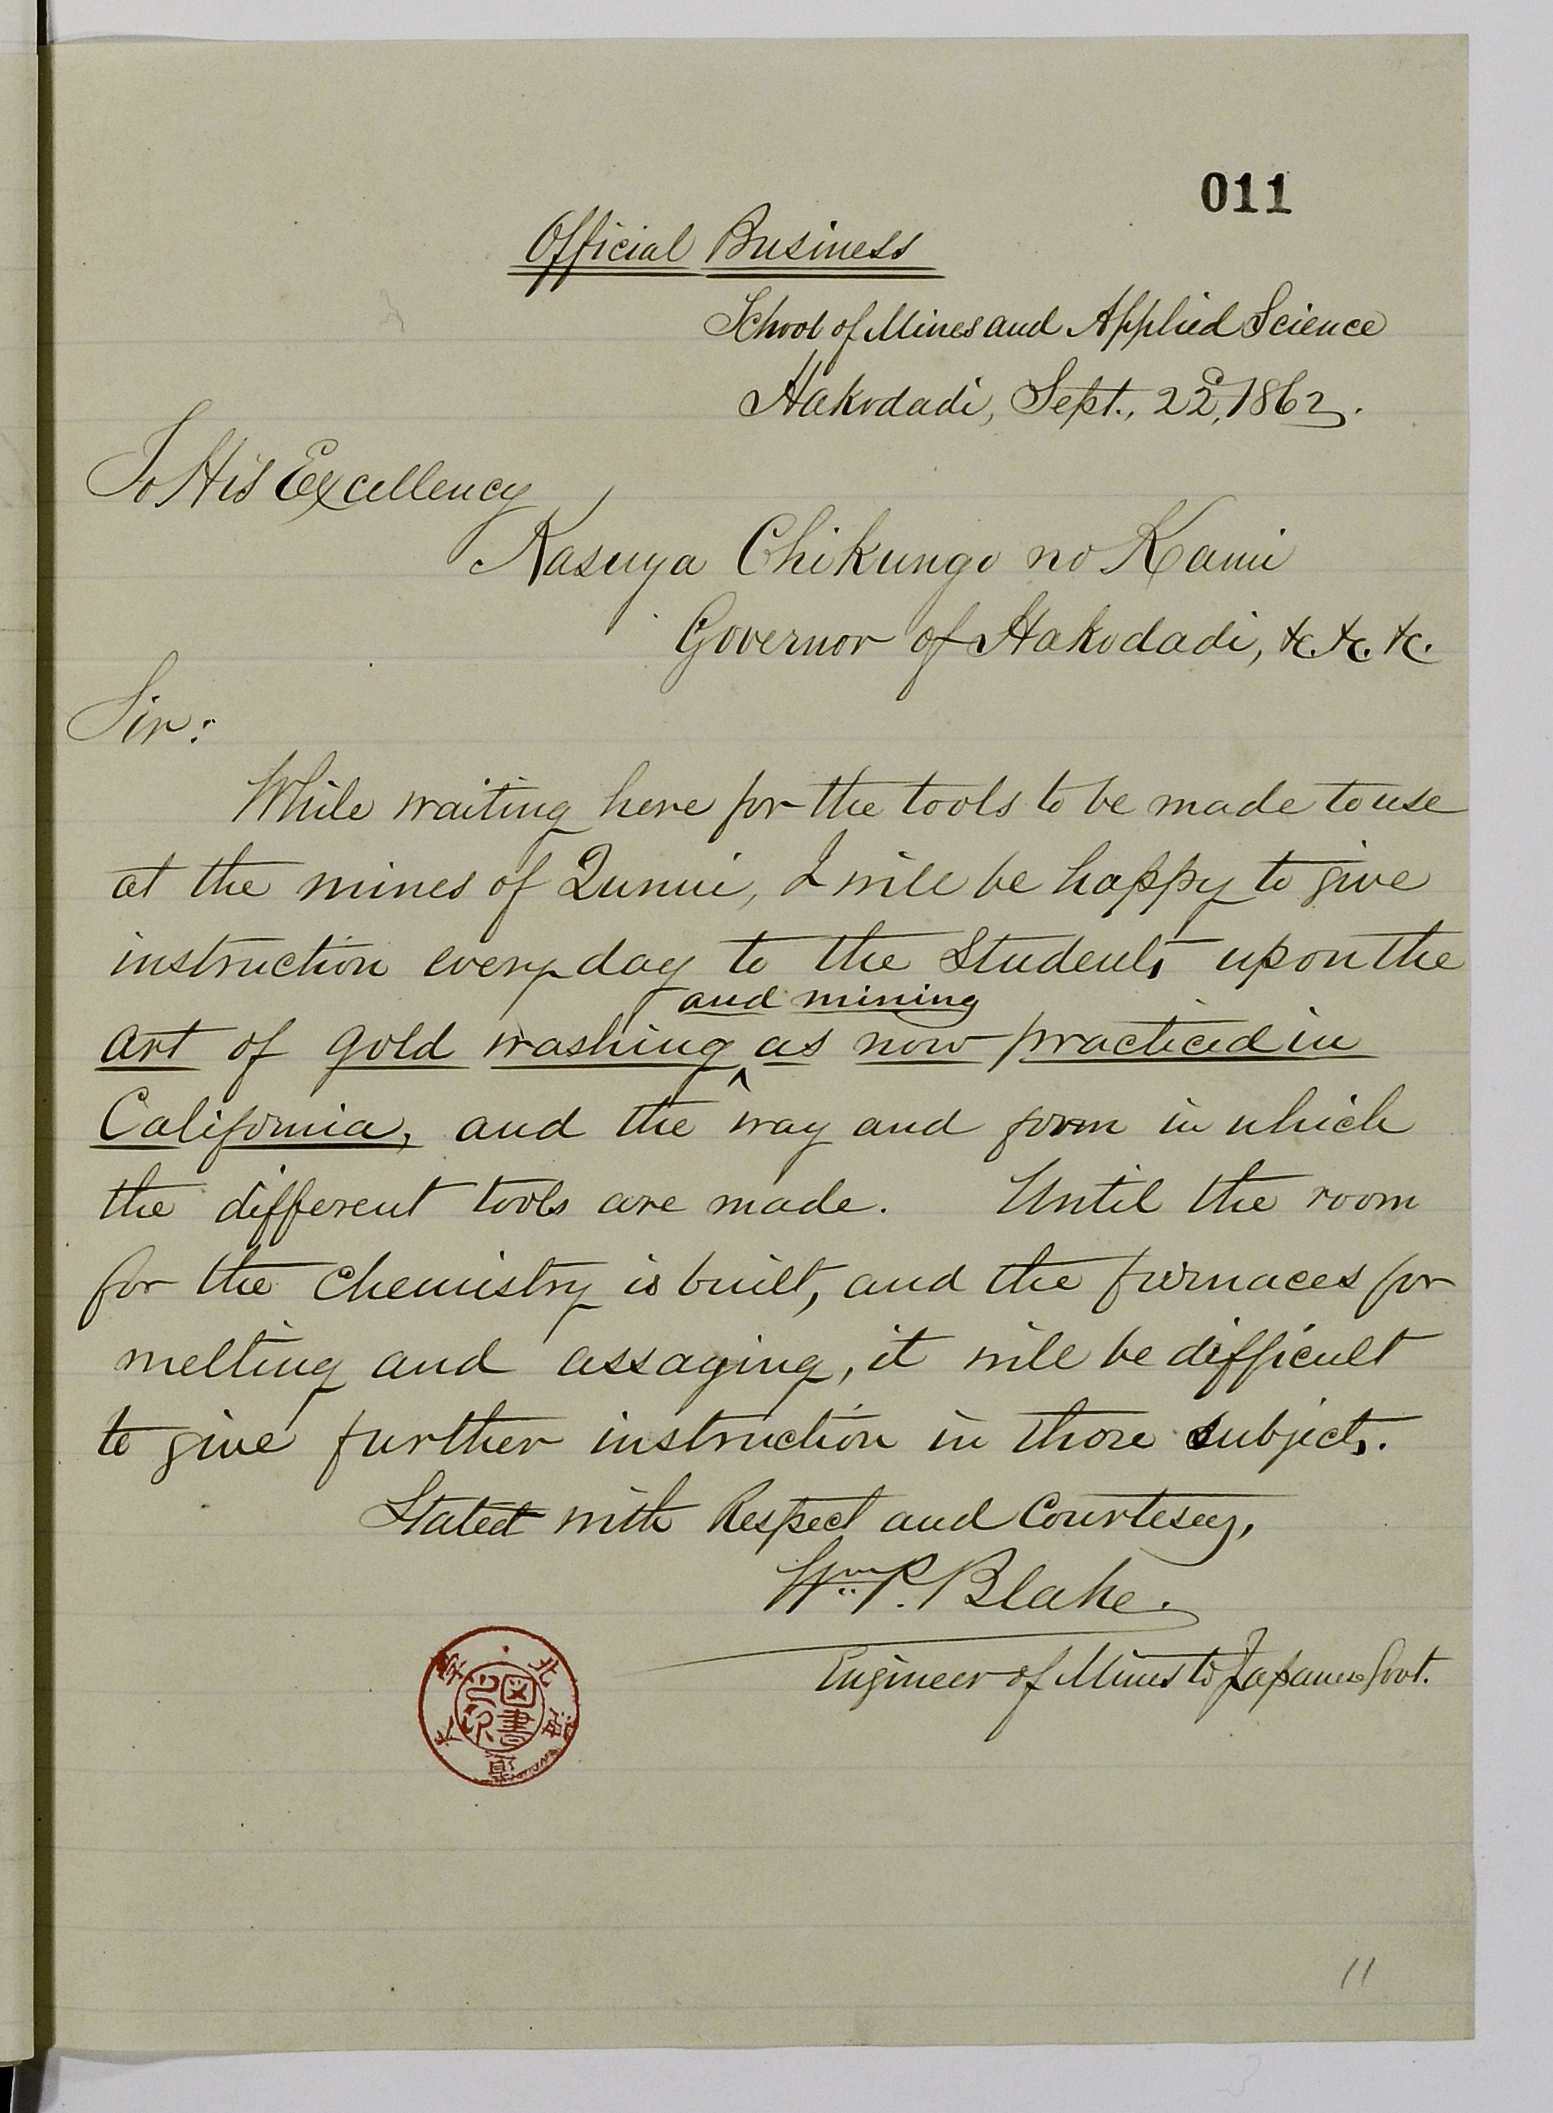 011
Official Business
School of Mines and Applied Science
Hakodadi, Sept., 22d, 1862.
To His Excellency
Kasuya Chikungo no Kami
Governor of Hakodadi, &c. &c. &c.
Sir:
While waiting here for the tools to be made to use
at the mines of Kunnui, I will be happy to give
instruction every day to the Students upon the
and mining
art of gold washing ^ as now practiced in
California, and the way and form in which
the different tools are made. Until the room
for the Chemistry is built, and the furnaces for
melting and assaying, it will be difficult
to give further instruction in those subjects.
Stated with Respect and Courtesey,
Wm. P. Blake.
Engineer of Mines to Japanese Govt.
図書
11